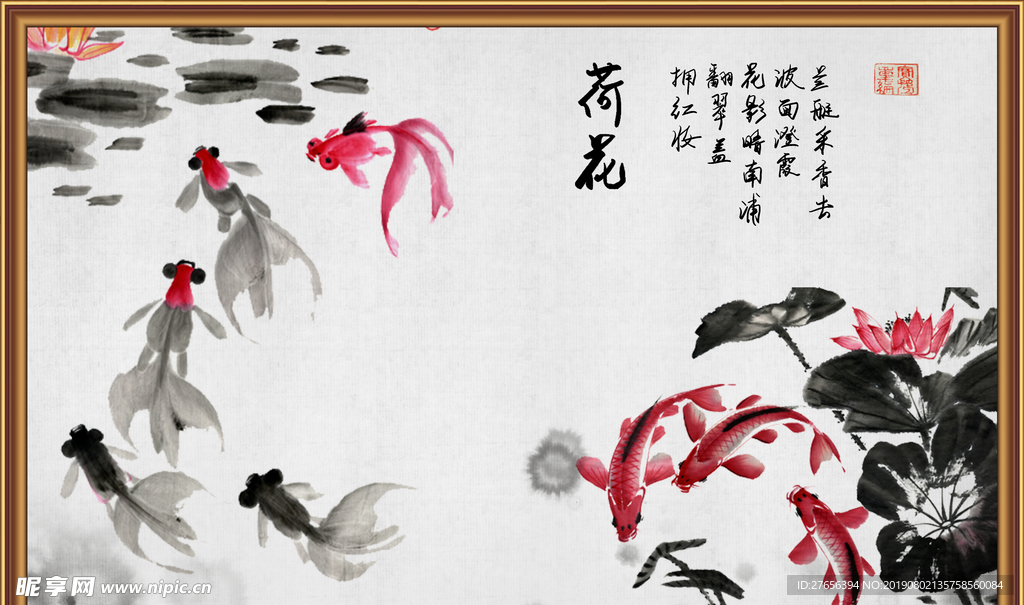 荷花
兰艇采香去
波面澄霞
花影暗南浦
翻翠盖
拥红妆
昵享网 www.nipic.cn
ID:27656394 NO:20190802135758560084